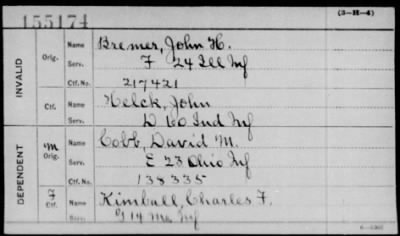 155174 (3-H-4)
INVALID
Orig. Name Bremer, John H.
Serv. F 24 Ill Inf
Ctf. No. 217421
Ctf. Name Helck, John
Serv. D 60 Ind Inf
DEPENDENT
M Orig. Name Cobb, David M.
Serv. E 23 Ohio Inf
Ctf. No. 138335
F Ctf. Name Kimball, Charles F.
Serv. 14 Me Inf